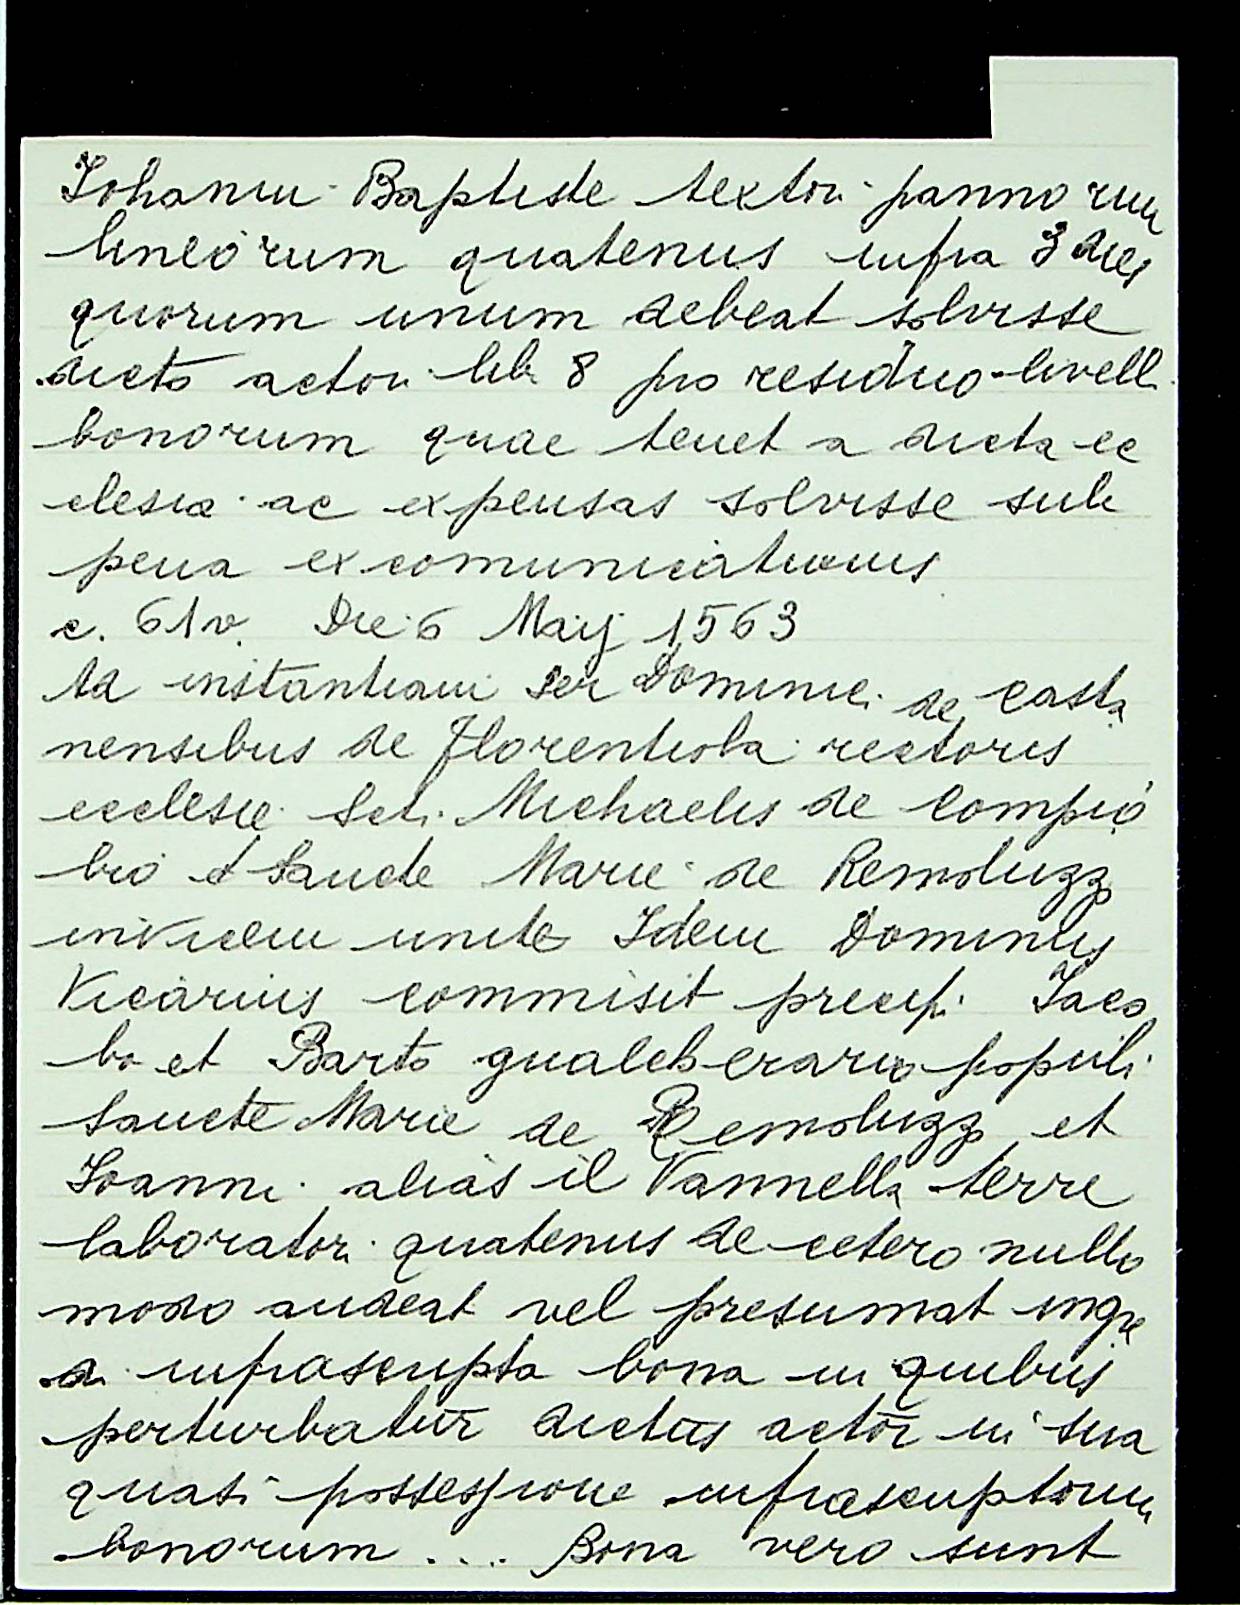 Iohanni Baptiste textori pannorum
lineorum quatenus infra 3 dies
quorum unum debeat solvisse
dicto actori lib 8 pro residuo livelli
bonorum quae tenet a dicta ec
clesia ac expensas solvisse sub
pena excomunicationis
c. 61v. Die 6 Maij 1563
Ad instantiam Ser Dominici de Casta
nensibus de Florentiola rectoris
ecclesie Scti. Michaelis de Compio
bio et Sancte Marie de Remoluzzo
invicem unite Idem Dominus
Vicarius commisit precipi Iaco
bo et Barto gualchierario populi
Sancte Marie de Remoluzzo et
Ioanni alias il Vannella terre
laboratori quatenus de cetero nullo
modo audeat vel presumat ingre
di infrascripta bona in quibus
perturbatur dictus actor in sua
quasi possessione infrascriptorum
bonorum ... Bona vero sunt